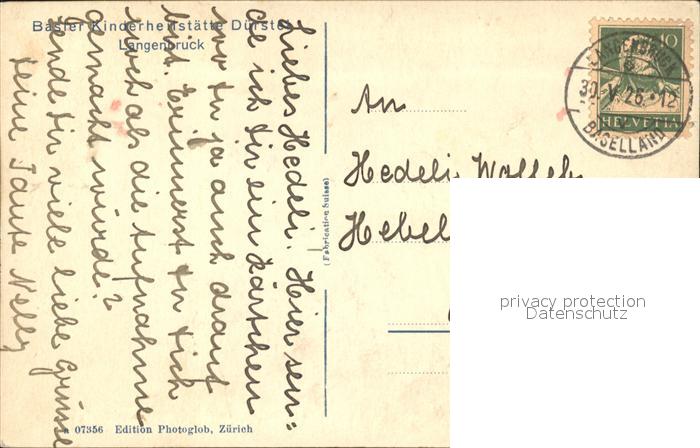 Basler Kinderheilstätte Dürstel
Langenbruck
Liebes Hedeli. Hier sen=
de ich dir ein Kärtchen
wo du ja auch drauf
bist. Erinnerst du dich
noch als die Aufnahme
gemacht wurde?
Sende dir viele liebe Grüsse
deine Tante Nelly
07356 Edition Photoglob, Zürich
(Fabrication Suisse)
An
Hedeli
Hebel
10
HELVETIA
LANGENBRUCK
30. V. 26. 12
BASELLAND
privacy protection
Datenschutz